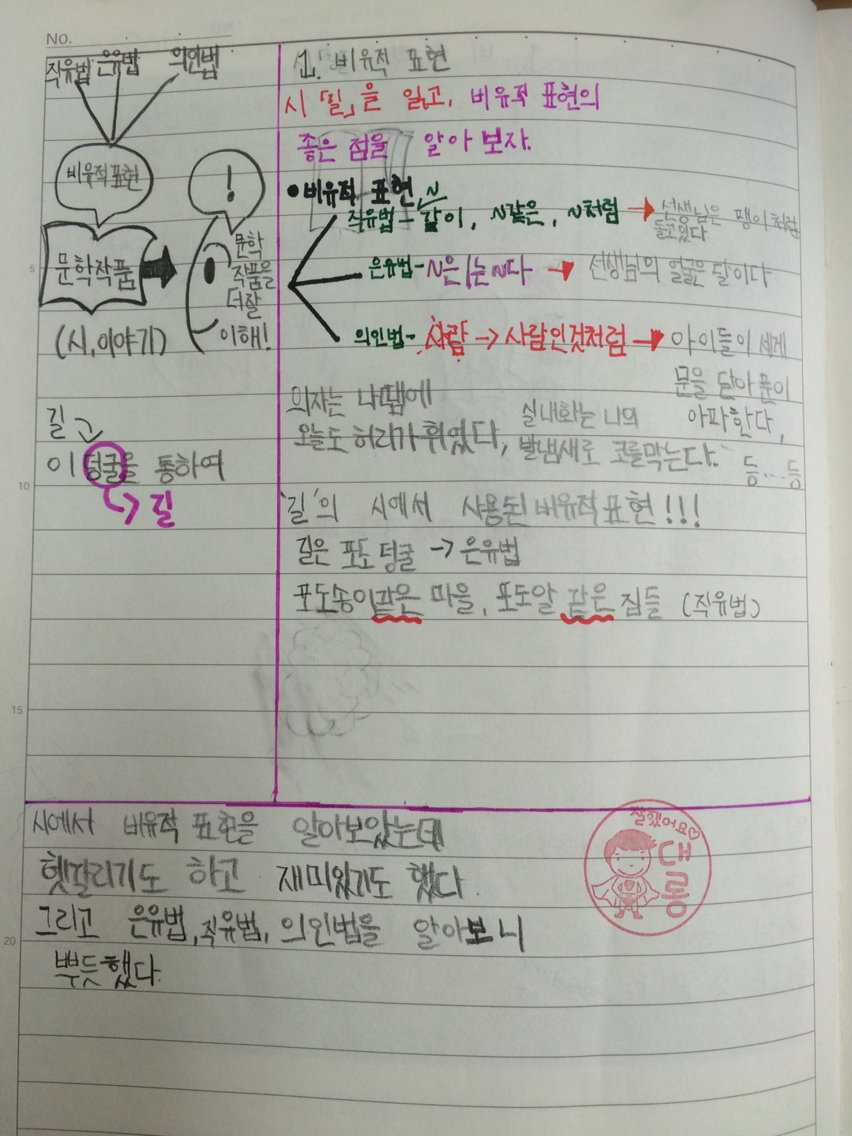 No.
직유법 은유법 의인법
비유적 표현
문학작품
(시, 이야기)
!
문학
작품을
더 잘
이해!
길고
이 덩굴을 통하여
길
1. 비유적 표현
시 「길」을 읽고, 비유적 표현의
좋은 점을 알아 보자.
• 비유적 표현
직유법 - N같이, N같은, N처럼 → 선생님은 팽이처럼
돌고있다
은유법 - N은/는 N다 → 선생님의 얼굴은 달이다
의인법 - 사람 → 사람인것처럼 → 아이들이 세게
문을 닫아 문이
아파한다,
의자는 나땜에
오늘도 허리가 휘었다,
실내화는 나의
발냄새로 코를막는다.
등...등
'길'의 시에서 사용된 비유적 표현!!!
길은 포도 덩굴 → 은유법
포도송이같은 마을, 포도알 같은 집들 (직유법)
5
10
15
20
시에서 비유적 표현을 알아보았는데
헷갈리기도 하고 재미있기도 했다.
그리고 은유법, 직유법, 의인법을 알아보니
뿌듯했다.
잘했어요♡
대롱